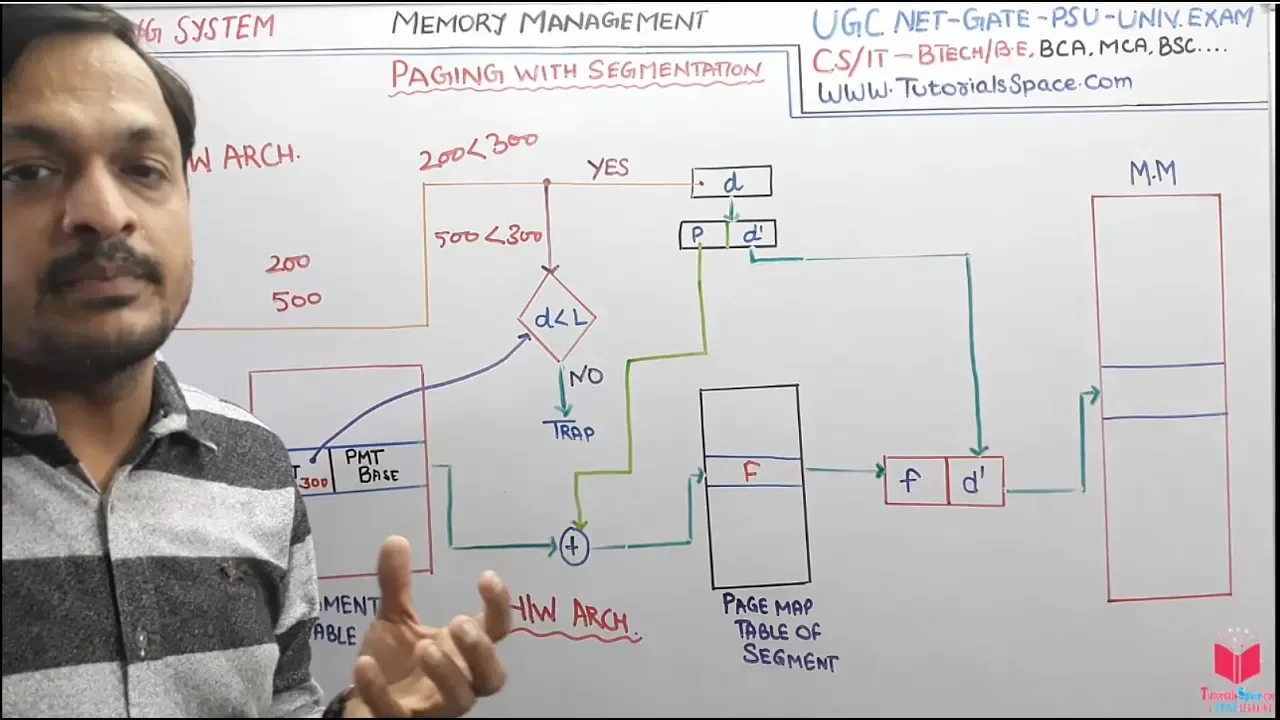 NG SYSTEM
MEMORY MANAGEMENT
UGC NET-GATE-PSU-UNIV. EXAM
CS/IT-BTECH/B.E, BCA, MCA, BSC....
WWW.TutorialsSpace.Com
PAGING WITH SEGMENTATION
W ARCH.
200<300
YES
d
M.M
P d'
500<300
200
500
d<L
NO
TRAP
T 300
PMT
BASE
F
f d'
+
GMENT
TABLE
H/W ARCH.
PAGE MAP
TABLE OF
SEGMENT